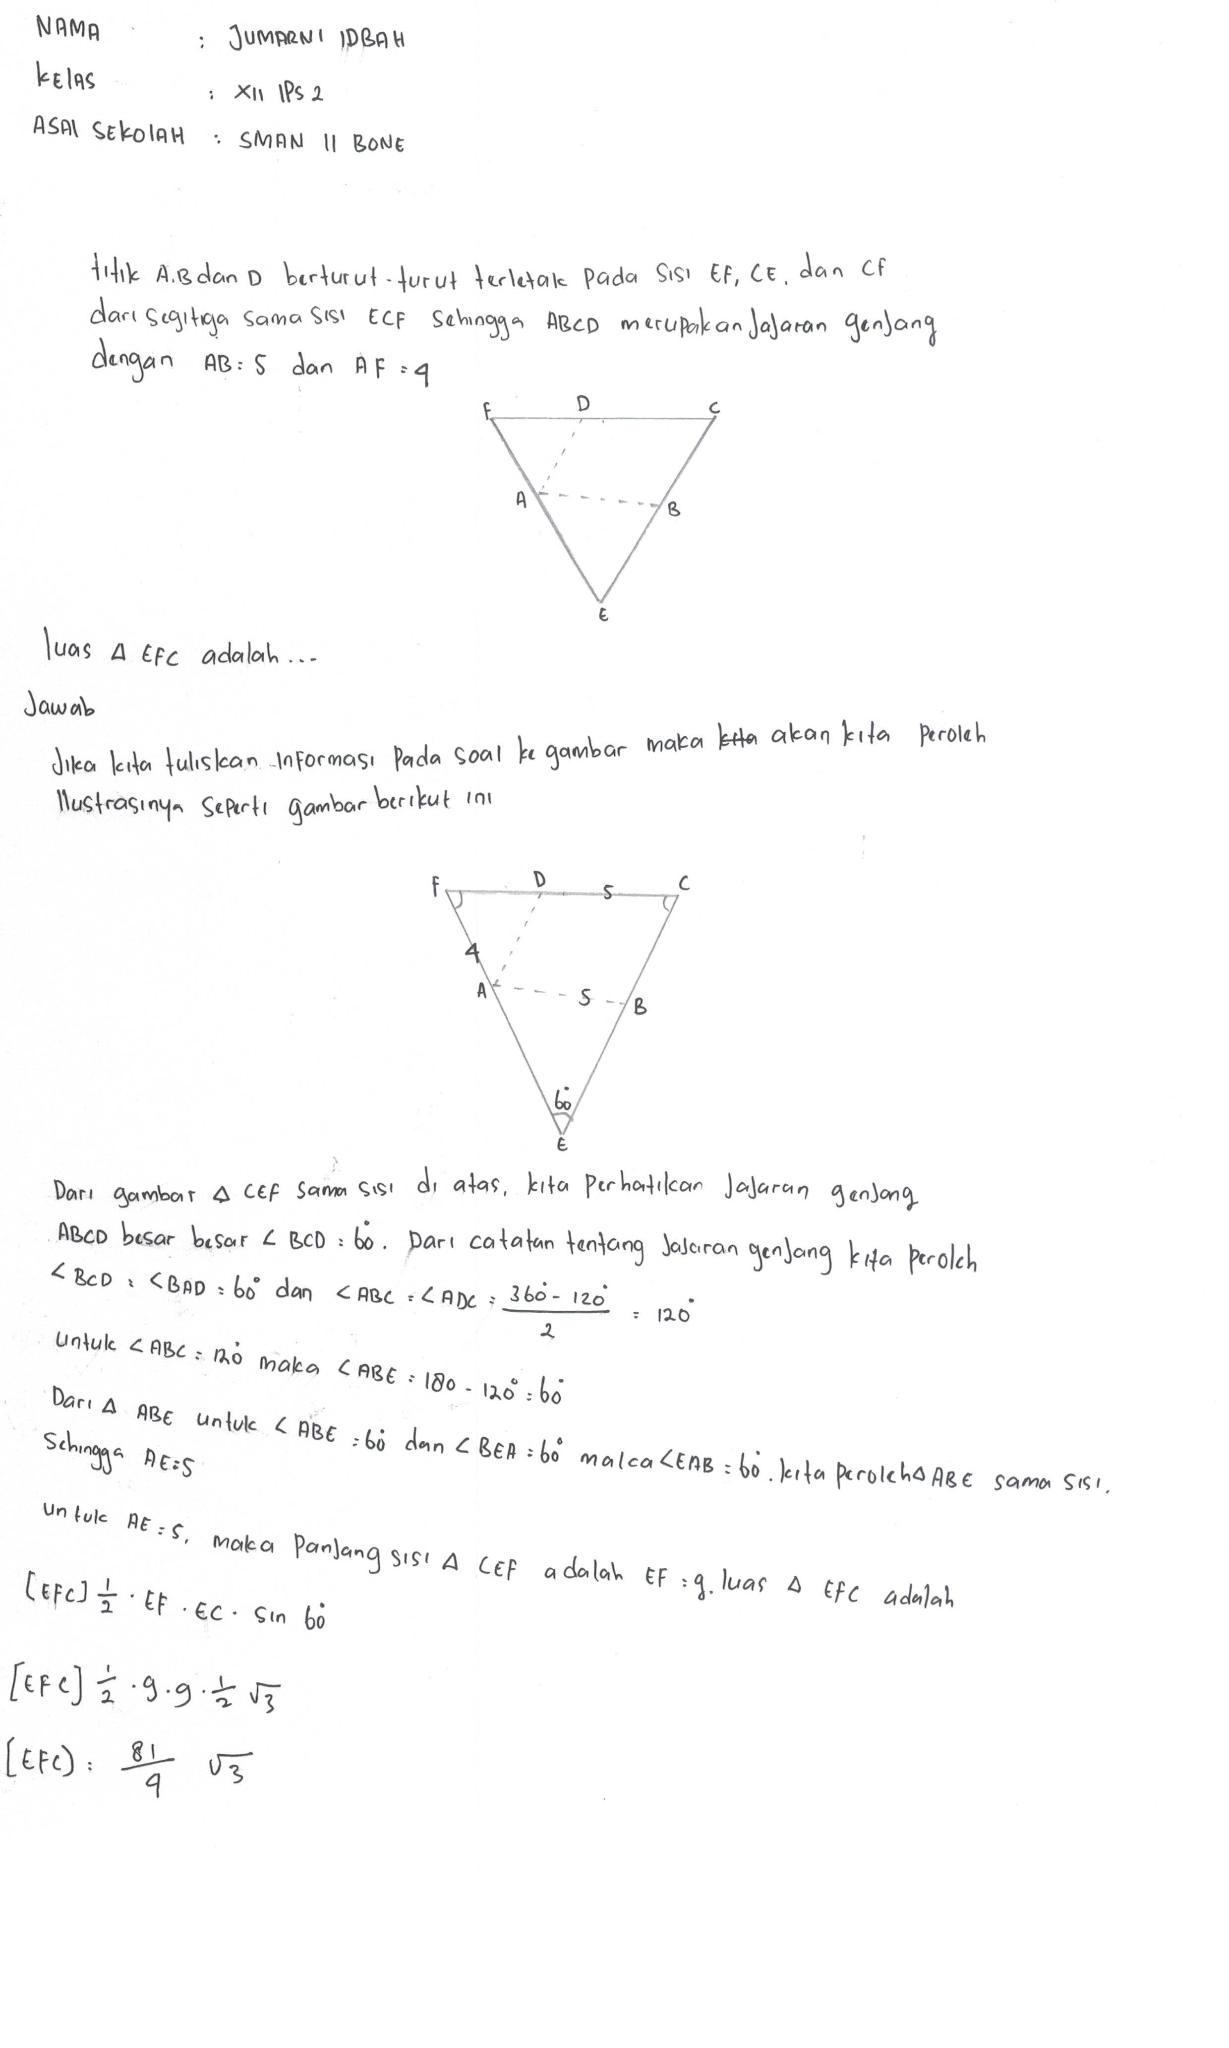 NAMA : JUMARNI IDBAH
KELAS : XII IPS 2
ASAL SEKOLAH : SMAN 11 BONE
titik A.B dan D berturut-turut terletak pada sisi EF, CE, dan CF
dari segitiga sama sisi ECF sehingga ABCD merupakan Jajaran genjang
dengan AB = 5 dan AF = 4
F D C
A B
E
luas Δ EFC adalah...
Jawab
Jika kita tuliskan informasi pada soal ke gambar maka kita akan kita peroleh
Ilustrasinya seperti gambar berikut ini
F D 5 C
4
A 5 B
60°
E
Dari gambar Δ CEF sama sisi di atas, kita perhatikan Jajaran genjang
ABCD besar besar ∠ BCD = 60°. Dari catatan tentang Jajaran genjang kita peroleh
∠ BCD = ∠BAD = 60° dan ∠ABC = ∠ADC = 360° - 120° / 2 = 120°
untuk ∠ABC = 120° maka ∠ABE = 180 - 120° = 60°
Dari Δ ABE untuk ∠ABE = 60° dan ∠BEA = 60° maka ∠EAB = 60°. kita peroleh Δ ABE sama sisi,
Sehingga AE = 5
untuk AE = 5, maka Panjang sisi Δ CEF adalah EF = 9. luas Δ EFC adalah
[EFC] 1/2 · EF · EC · Sin 60°
[EFC] 1/2 · 9 · 9 · 1/2 √3
[EFC) = 81/4 √3